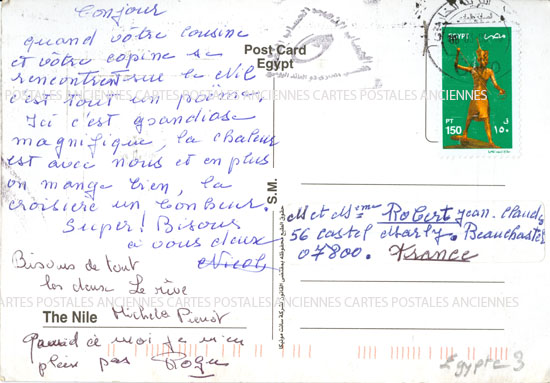 Bonjour
quand votre cousine
et votre copine se
rencontrent sur le Nil
c'est tout un poème.
Ici c'est grandiose
magnifique, la chaleur
est avec nous et en plus
on mange bien, la
croisière un bonheur.
Super! Bisous
à vous deux
Nicole
Bisous de tout
les deux Le rêve
The Nile Michèle
Quand à moi je m'en
plein pas Roger
Post Card
Egypt
S.M.
EGYPT مصر
PT 150 ١٥٠
M et Mme Robert Jean-Claude
56 Castel Marly. Beauchastel
07800. France
CARTES POSTALES ANCIENNES CARTES POSTALES ANCIENNES
CARTES POSTALES ANCIENNES CARTES POSTALES ANCIENNES
Egypte 3